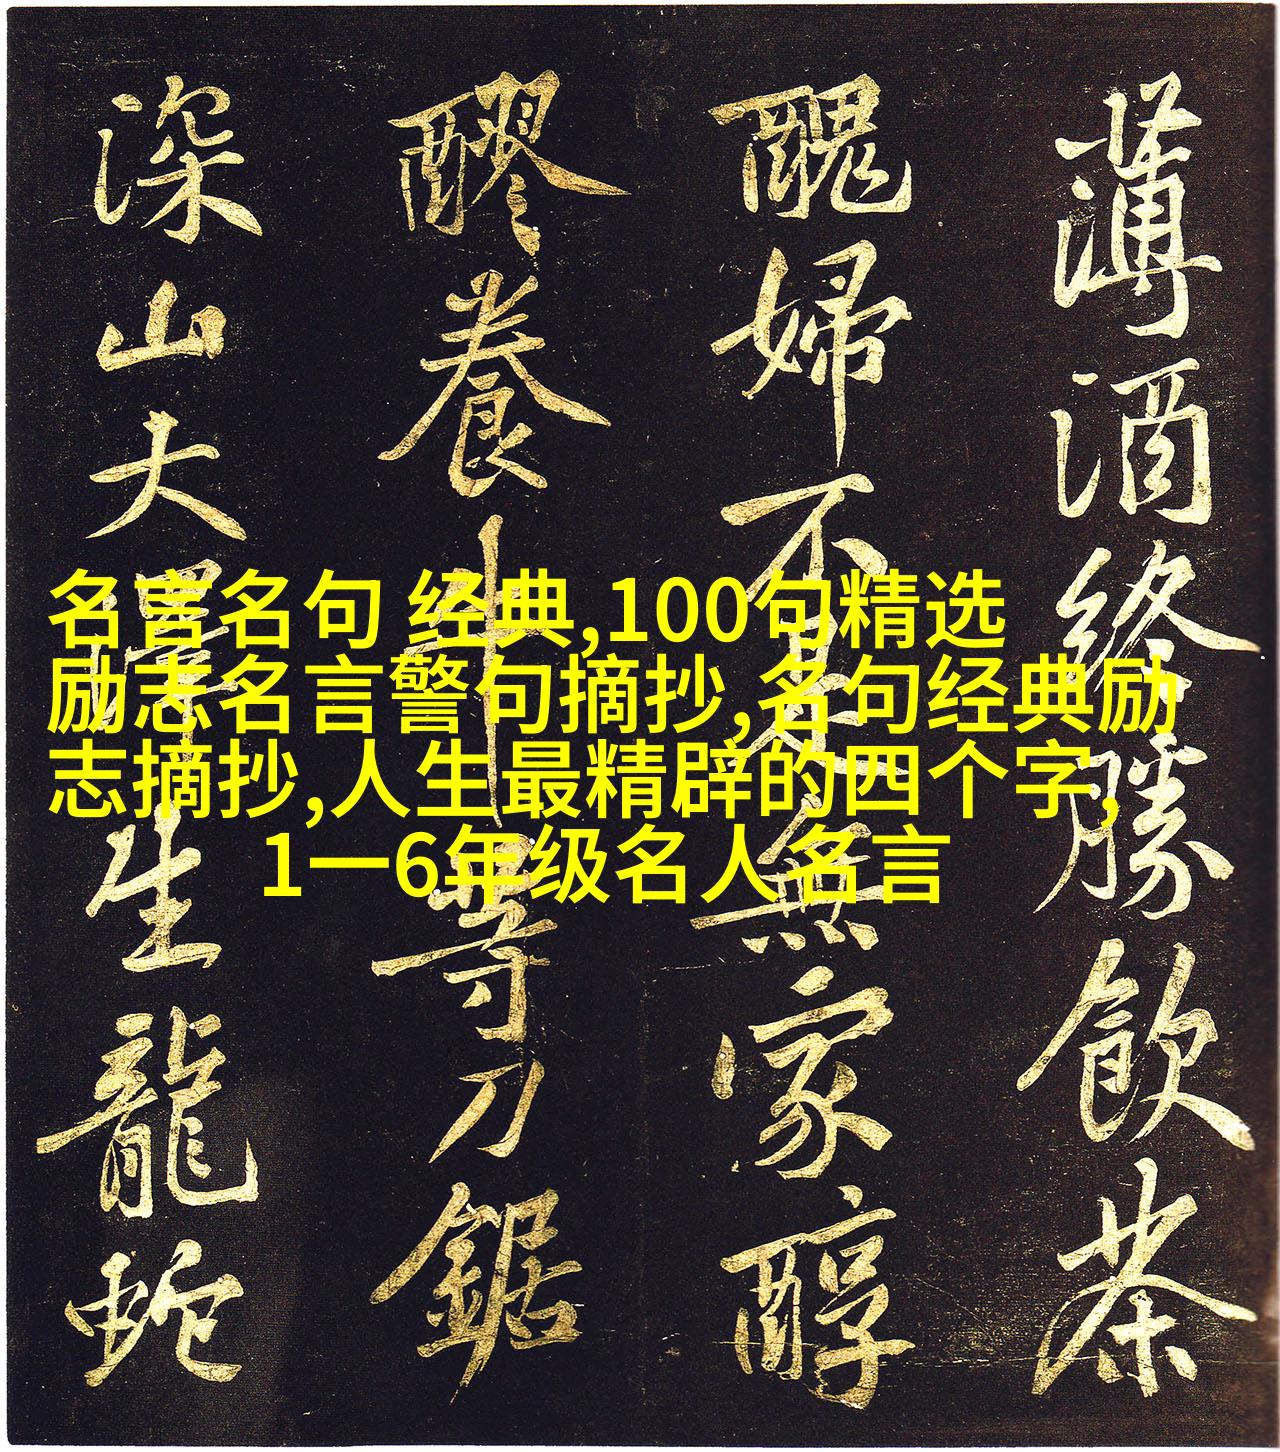 薄酒終勝飲茶
醜婦不是無家醇
醪養牛等刀鋸
深山大澤生龍蛇
名言名句 经典,100句精选
励志名言警句摘抄,名句经典励
志摘抄,人生最精辟的四个字,
1一6年级名人名言